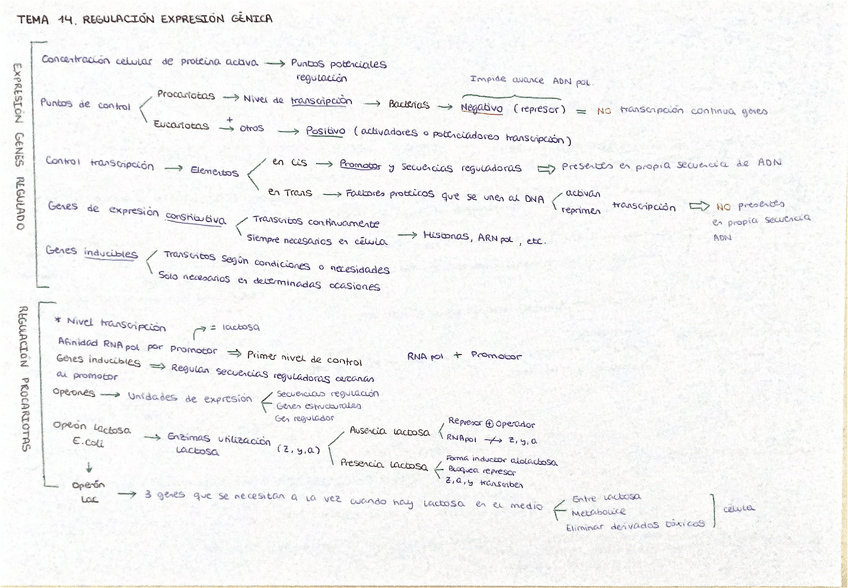 TEMA 14. REGULACIÓN EXPRESIÓN GÉNICA
EXPRESIÓN GENES REGULADO
Concentración celular de proteína activa → Puntos potenciales
regulación
Impide avance ADN pol.
Puntos de control
Procariotas → Nivel de transcripción → Bacterias → Negativo (represor) = NO transcripción continua genes
Eucariotas → + otros → Positivo (activadores o potenciadores transcripción)
Control transcripción → Elementos
en Cis → Promotor y secuencias reguladoras ⇒ Presentes en propia secuencia de ADN
en Trans → Factores proteicos que se unen al DNA
activan
reprimen
transcripción ⇒ NO presentes
en propia secuencia
ADN
Genes de expresión constitutiva
Transcritos continuamente
Siempre necesarios en célula → Histonas, ARNpol, etc.
Genes inducibles
Transcritos según condiciones o necesidades
Solo necesarios en determinadas ocasiones
REGULACIÓN PROCARIOTAS
* Nivel transcripción
= lactosa
Afinidad RNApol por Promotor ⇒ Primer nivel de control
RNApol + Promotor
Genes inducibles ⇒ Regulan secuencias reguladoras cercanas
al promotor
Operones → Unidades de expresión
Secuencias regulación
Genes estructurales
Gen regulador
Operón lactosa
E.Coli
→ Enzimas utilización
lactosa
(z, y, a)
Ausencia lactosa
Represor ⊕ Operador
RNApol ↛ z, y, a
Presencia lactosa
Forma inductor alolactosa
Bloquea represor
z, a, y transcriben
↓
Operón
Lac
→ 3 genes que se necesitan a la vez cuando hay lactosa en el medio
Entre lactosa
Metabolice
Eliminar derivados tóxicos
célula